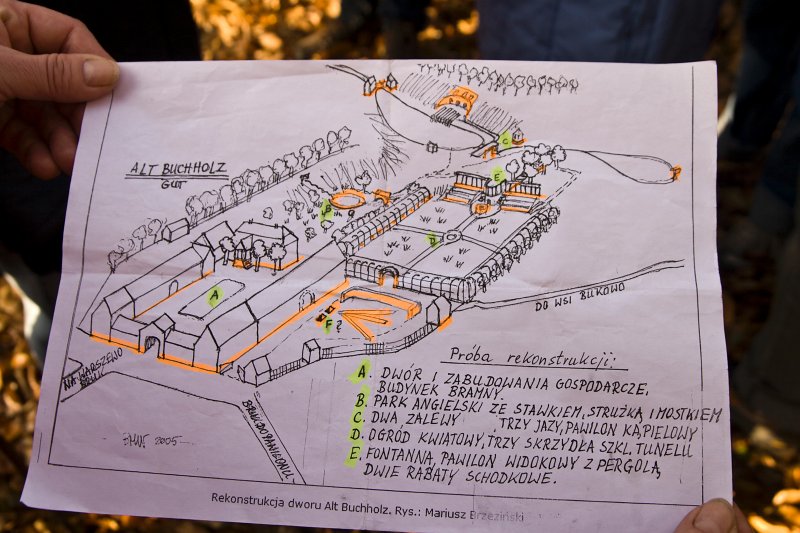 ALT BUCHHOLZ
GUT
A
B
C
D
E
F?
NA WARSZEWO
BRUK
DO WSI BUKOWO
EMNŻ 2005
Próba rekonstrukcji:
A. DWÓR I ZABUDOWANIA GOSPODARCZE,
BUDYNEK BRAMNY.
B. PARK ANGIELSKI ZE STAWKIEM, STRUŻKĄ I MOSTKIEM
C. DWA ZALEWY TRZY JAZY, PAWILON KĄPIELOWY
D. OGRÓD KWIATOWY, TRZY SKRZYDŁA SZKL. TUNELU
E. FONTANNA, PAWILON WIDOKOWY Z PERGOLĄ
DWIE RABATY SCHODKOWE.
Rekonstrukcja dworu Alt Buchholz. Rys.: Mariusz Brzeziński